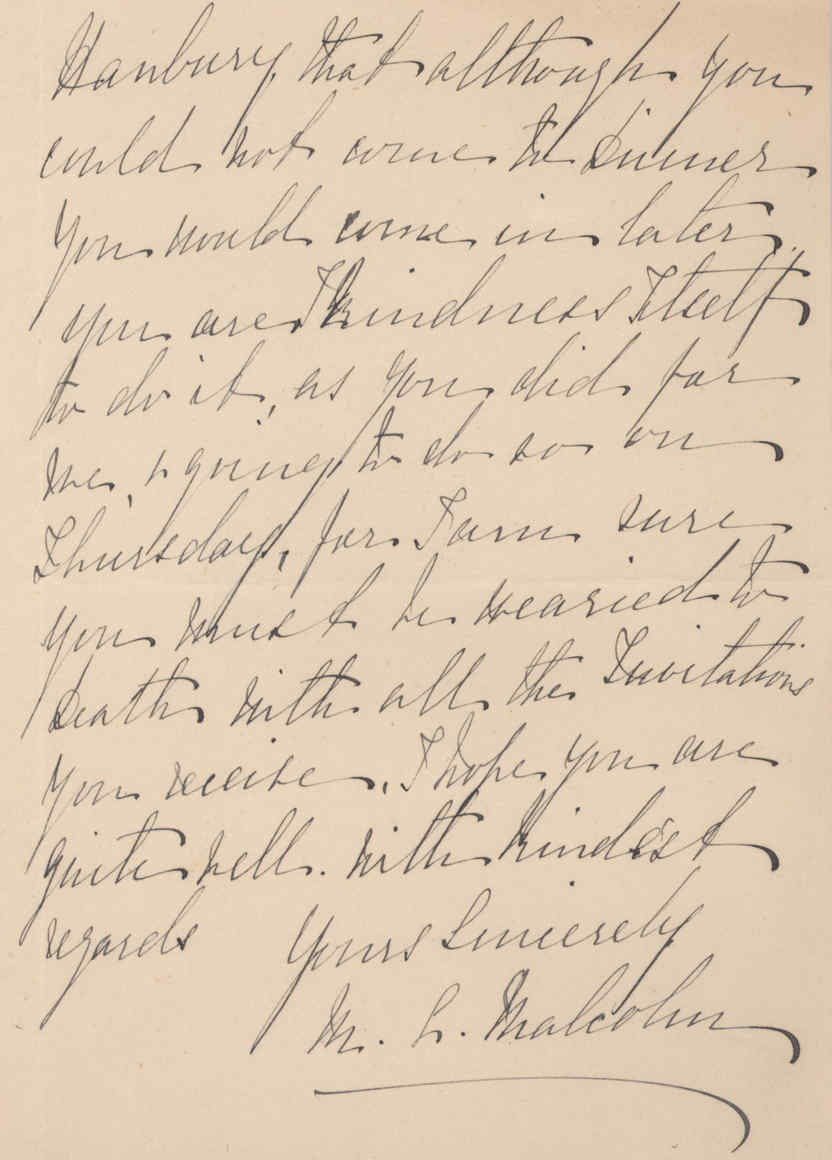 Hanbury, that although you
could not come to dinner
you would come in later,
you are kindness Itself
to do it, as you did for
me, & going to do so on
Thursday, for I am sure
you must be wearied to
death with all the Invitations
you receive. I hope you are
quite well. With kindest
regards Yours Sincerely
M. L. Malcolm